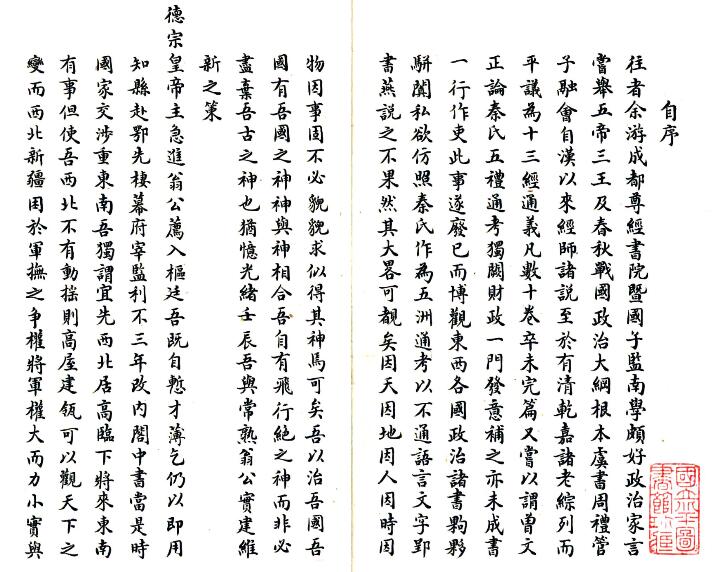 自序
往者余游成都尊經書院暨國子監南學頗好政治家言
嘗舉五帝三王及春秋戰國政治大綱根本虞書周禮管
子融會自漢以來經師諸説至於有清乾嘉諸老綜列而
平議為十三經通義凡數十卷卒未完篇又嘗以謂曾文
正論秦氏五禮通考獨闕財政一門發意補之亦未成書
一行作吏此事遂廢已而博觀東西各國政治諸書夥夥
駢闐私欲仿照秦氏作為五洲通考以不通語言文字郢
書燕説之不果然其大畧可覩矣因天因地因人因時因
物因事固不必貌貌求似得其神焉可矣吾以治吾國吾
國有吾國之神神與神相合吾自有飛行絶之神而非必
盡棄吾古之神也猶憶光緒壬辰吾與常熟翁公實建維
新之策
德宗皇帝主急進翁公薦入樞廷吾既自慙才薄乞仍以即用
知縣赴鄂先棲幕府宰監利不三年改内閣中書當是時
國家交涉重東南吾獨謂宜先西北居高臨下將來東南
有事但使吾西北不有動摇則高屋建瓴可以觀天下之
變而西北新疆困於軍撫之争權將軍權大而力小實與